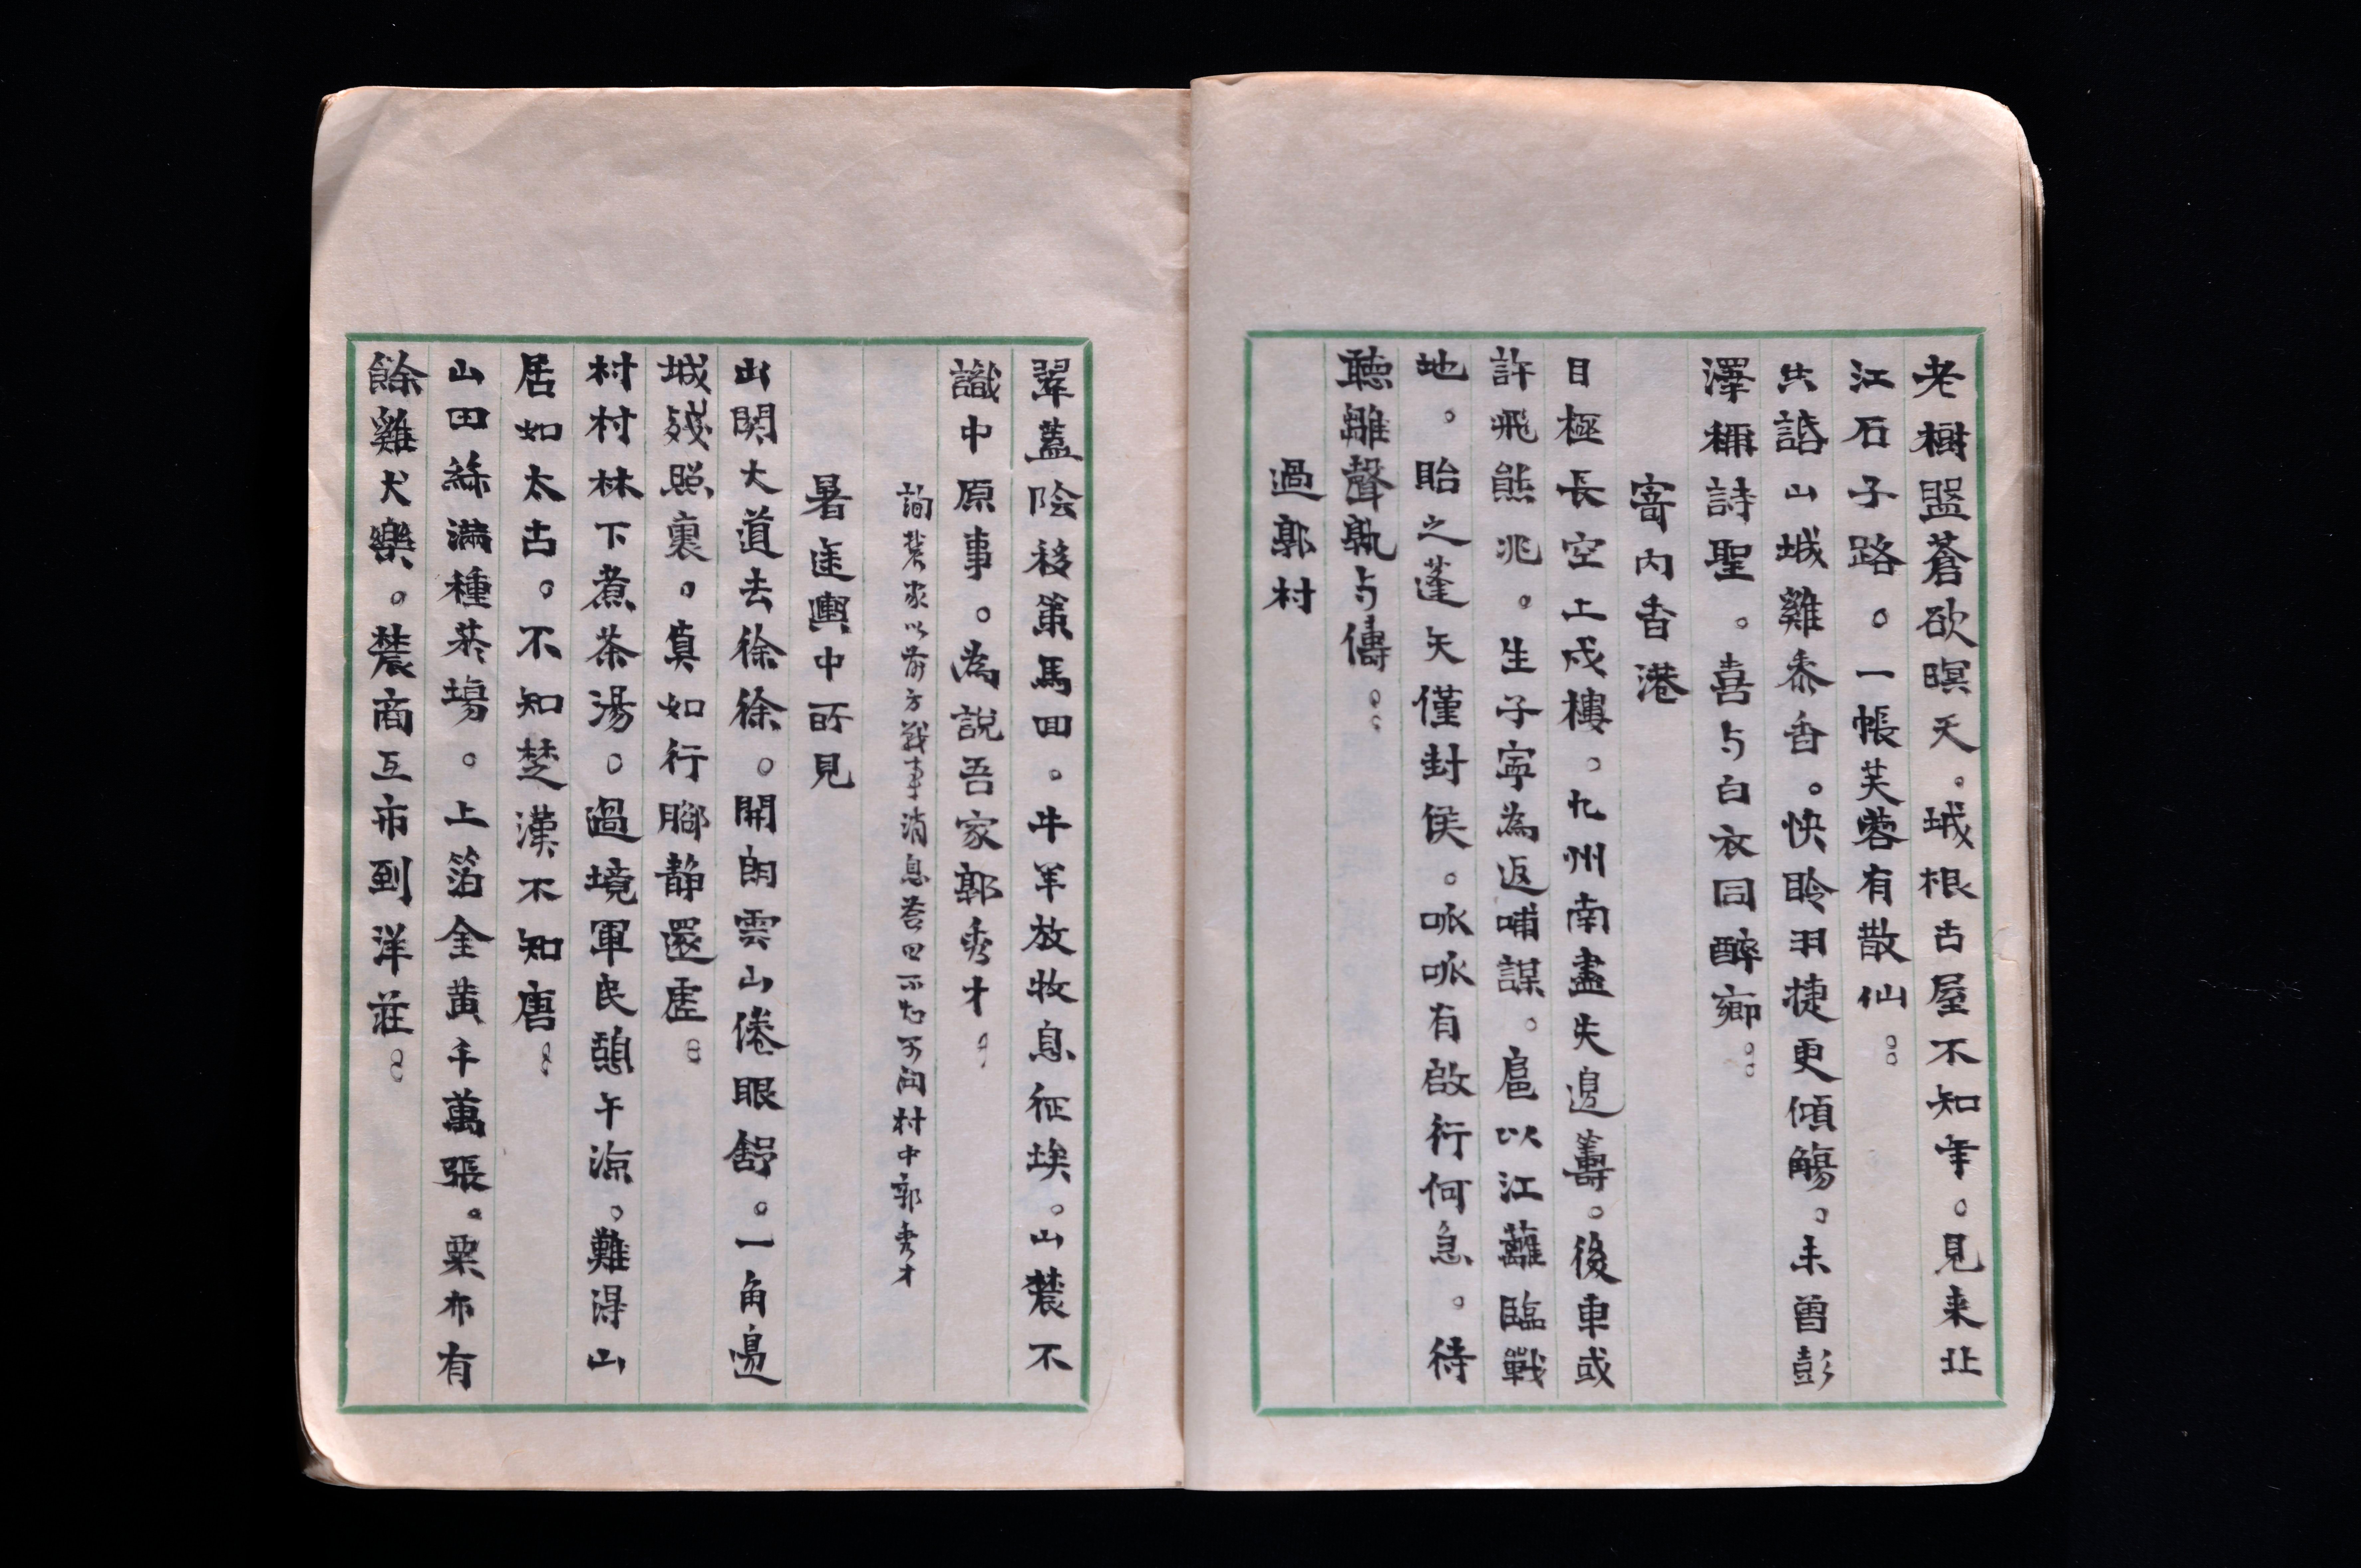 老樹盤蒼欲暝天。城根古屋不知年。見来北
江石子路。一帳芙蓉有散仙。。
共話山城雞黍香。快聆羽捷更傾觴。未曾彭
澤稱詩聖。喜与白衣同醉鄉。。
寄內香港
目極長空上戍樓。九州南盡失邊籌。後車或
許飛熊兆。生子寧為返哺謀。扈以江蘺臨戰
地。貽之蓬矢僅封侯。呱呱有啟行何急。待
聽雛聲孰与儔。。
過郭村
翠蓋陰移策馬回。牛羊放牧息征埃。山農不
識中原事。為說吾家郭秀才。。
詢農家以前方戰事消息答曰不知可問村中郭秀才
暑途輿中所見
出関大道去徐徐。開朗雲山倦眼舒。一角邊
城殘照裏。真如行腳静還虛。。
村村林下煮茶湯。過境軍民憩午涼。難得山
居如太古。不知楚漢不知唐。。
山田絲滿種菸場。上箔金黃千萬張。粟布有
餘雞犬樂。農商互市到洋莊。。